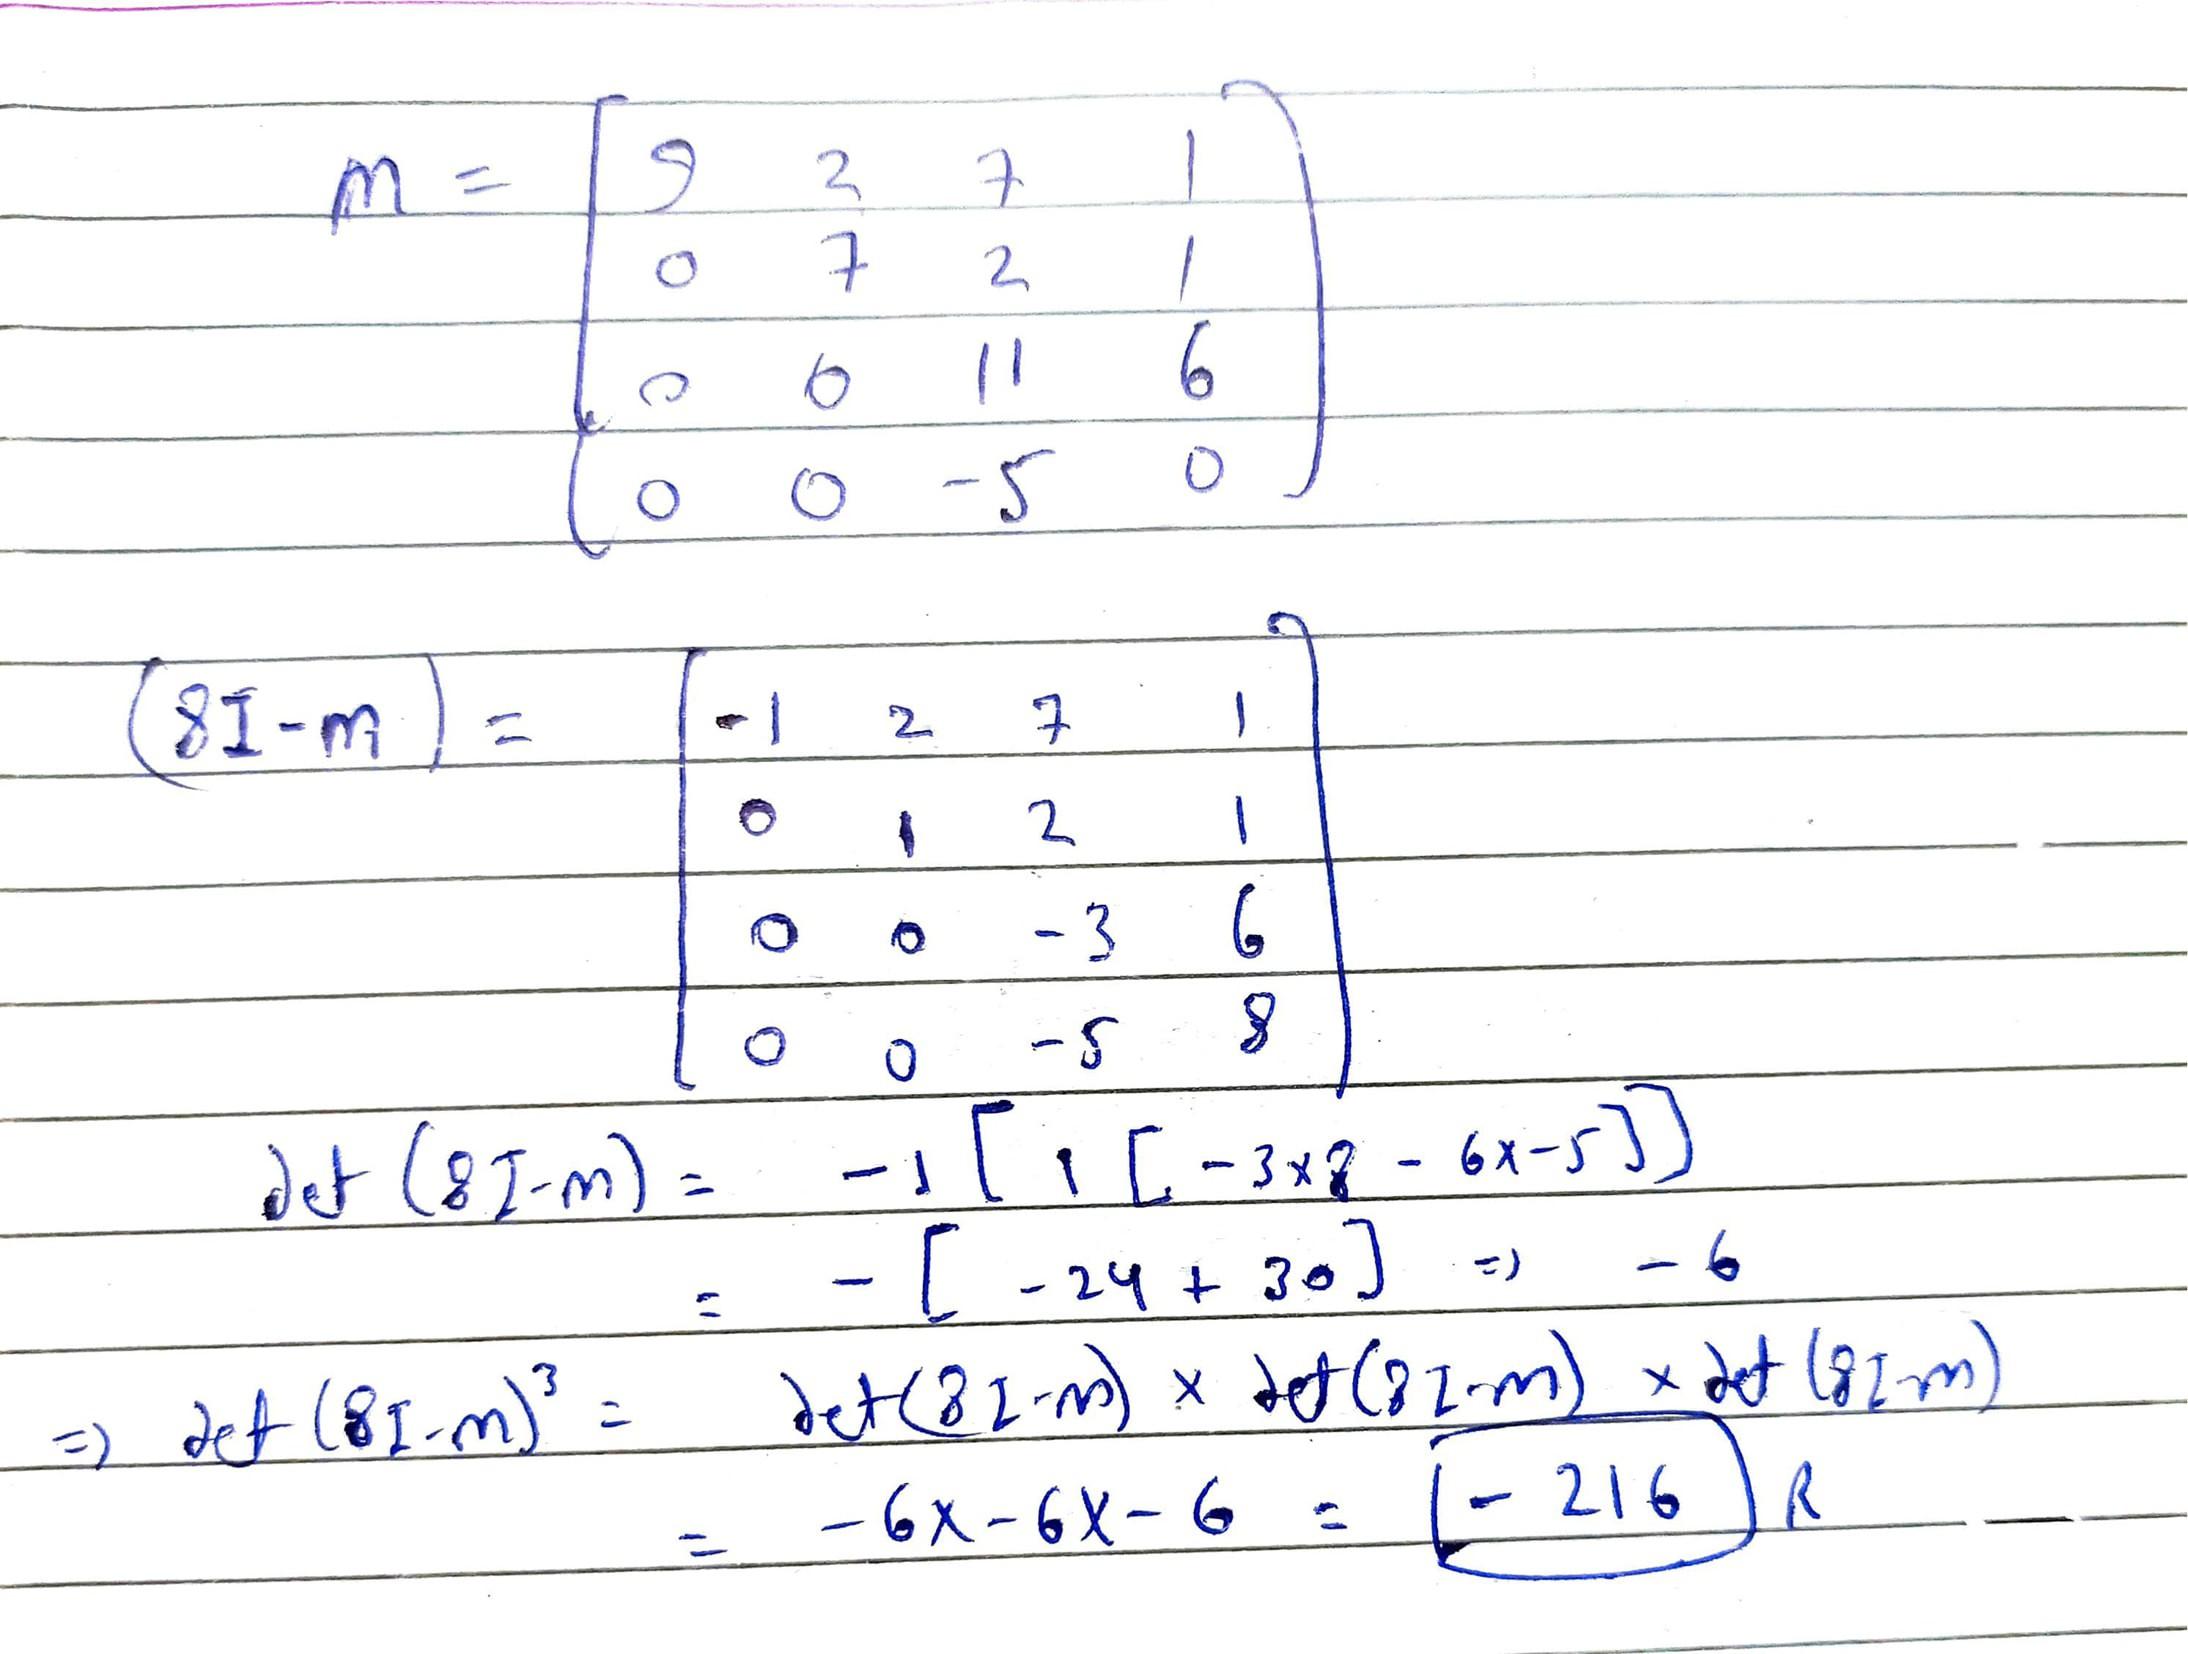 m = [ 9 2 7 1
0 7 2 1
0 0 11 6
0 0 -5 0 ]
(8I-m) = [ -1 2 7 1
0 1 2 1
0 0 -3 6
0 0 -5 8 ]
det (8I-m) = -1 [ 1 [ -3x8 - 6x-5 ] ]
= - [ -24 + 30 ] => -6
=> det (8I-m)³ = det(8I-m) x det(8I-m) x det(8I-m)
= -6x-6x-6 = -216 R